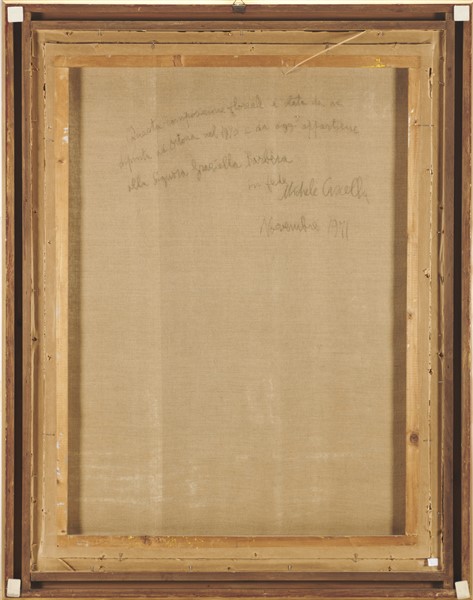 Questa composizione floreale è stata da me
eseguita ad Ortona nel 1970 e da oggi appartiene
alla Signora Graziella Barbera
in fede Michele Cascella
Novembre 1971